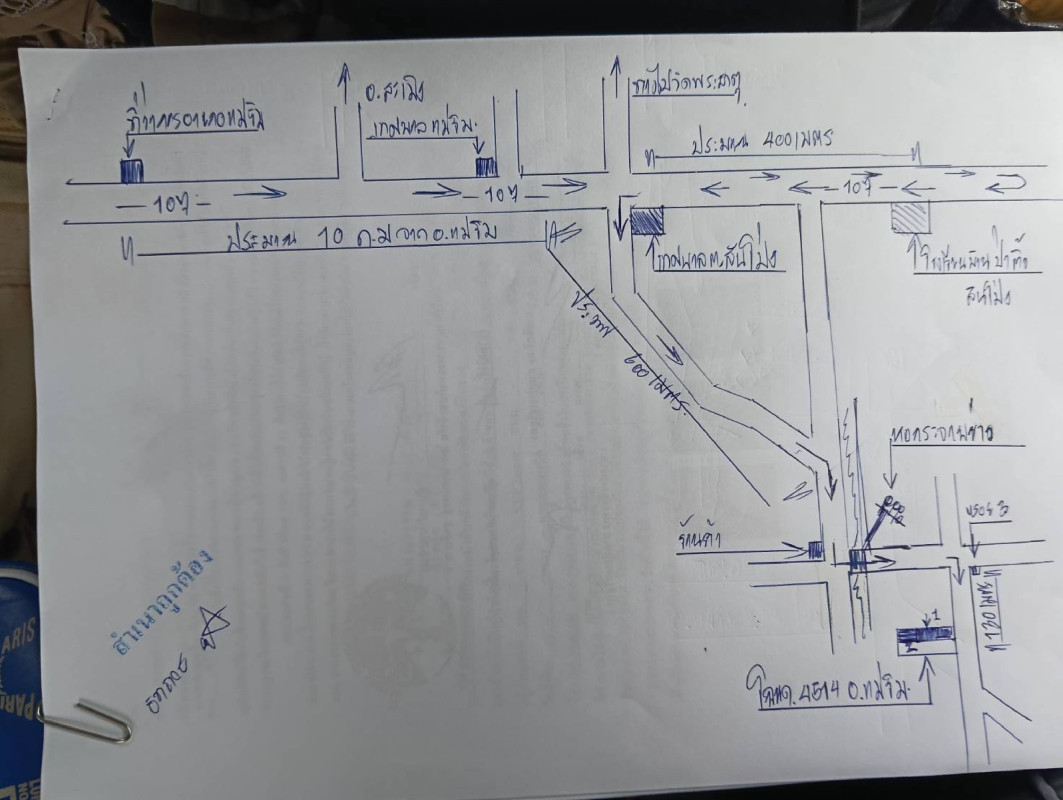 ที่ว่าการอำเภอแม่ริม
อ.สะเมิง
เทศบาลแม่ริม.
ทางไปวัดพระธาตุ
ประมาณ 400 เมตร
107
107
107
ประมาณ 10 ก.ม จาก อ.แม่ริม
เทศบาล ต.สันโป่ง
โรงเรียนบ้านป่าติ้ว
สันโป่ง
600 เมตร.
หอกระจายข่าว
ร้านค้า
ซอย 3
120 เมตร
1
2
โฉนด.4514 อ.แม่ริม.
สำเนาถูกต้อง
PARIS